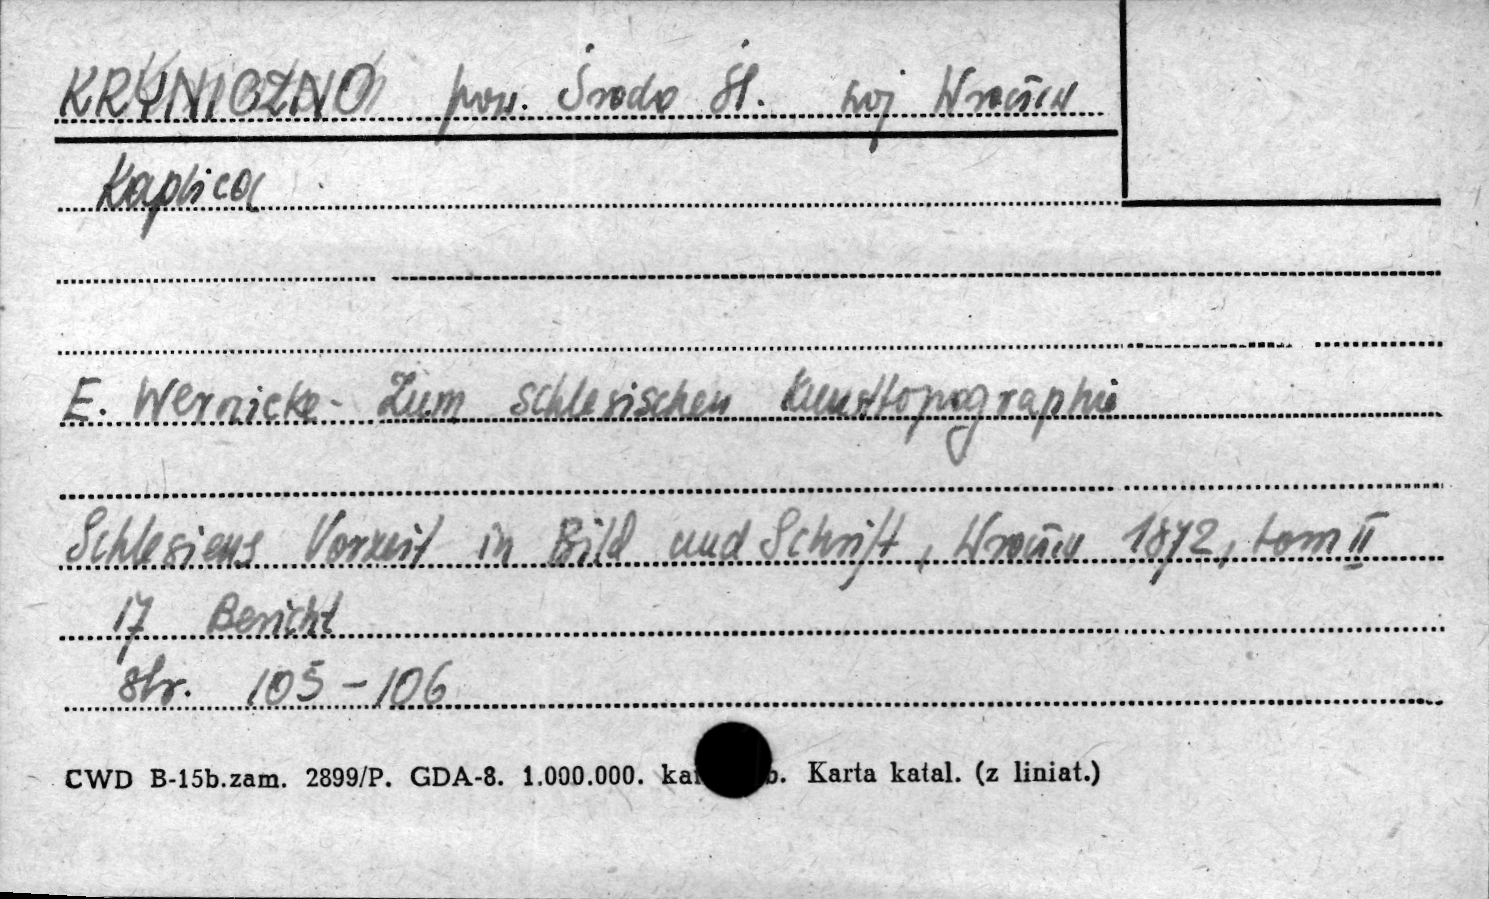 KRYNICZNO pow. Środa Śl. woj Wrocław
Kaplica
E. Wernicke - Zum schlesischen Kunsttopographie
Schlesiens Vorzeit in Bild und Schrift, Wrocław 1872, tom II
17 Bericht
str. 105-106
CWD B-15b.zam. 2899/P. GDA-8. 1.000.000. Karta katal. (z liniat.)